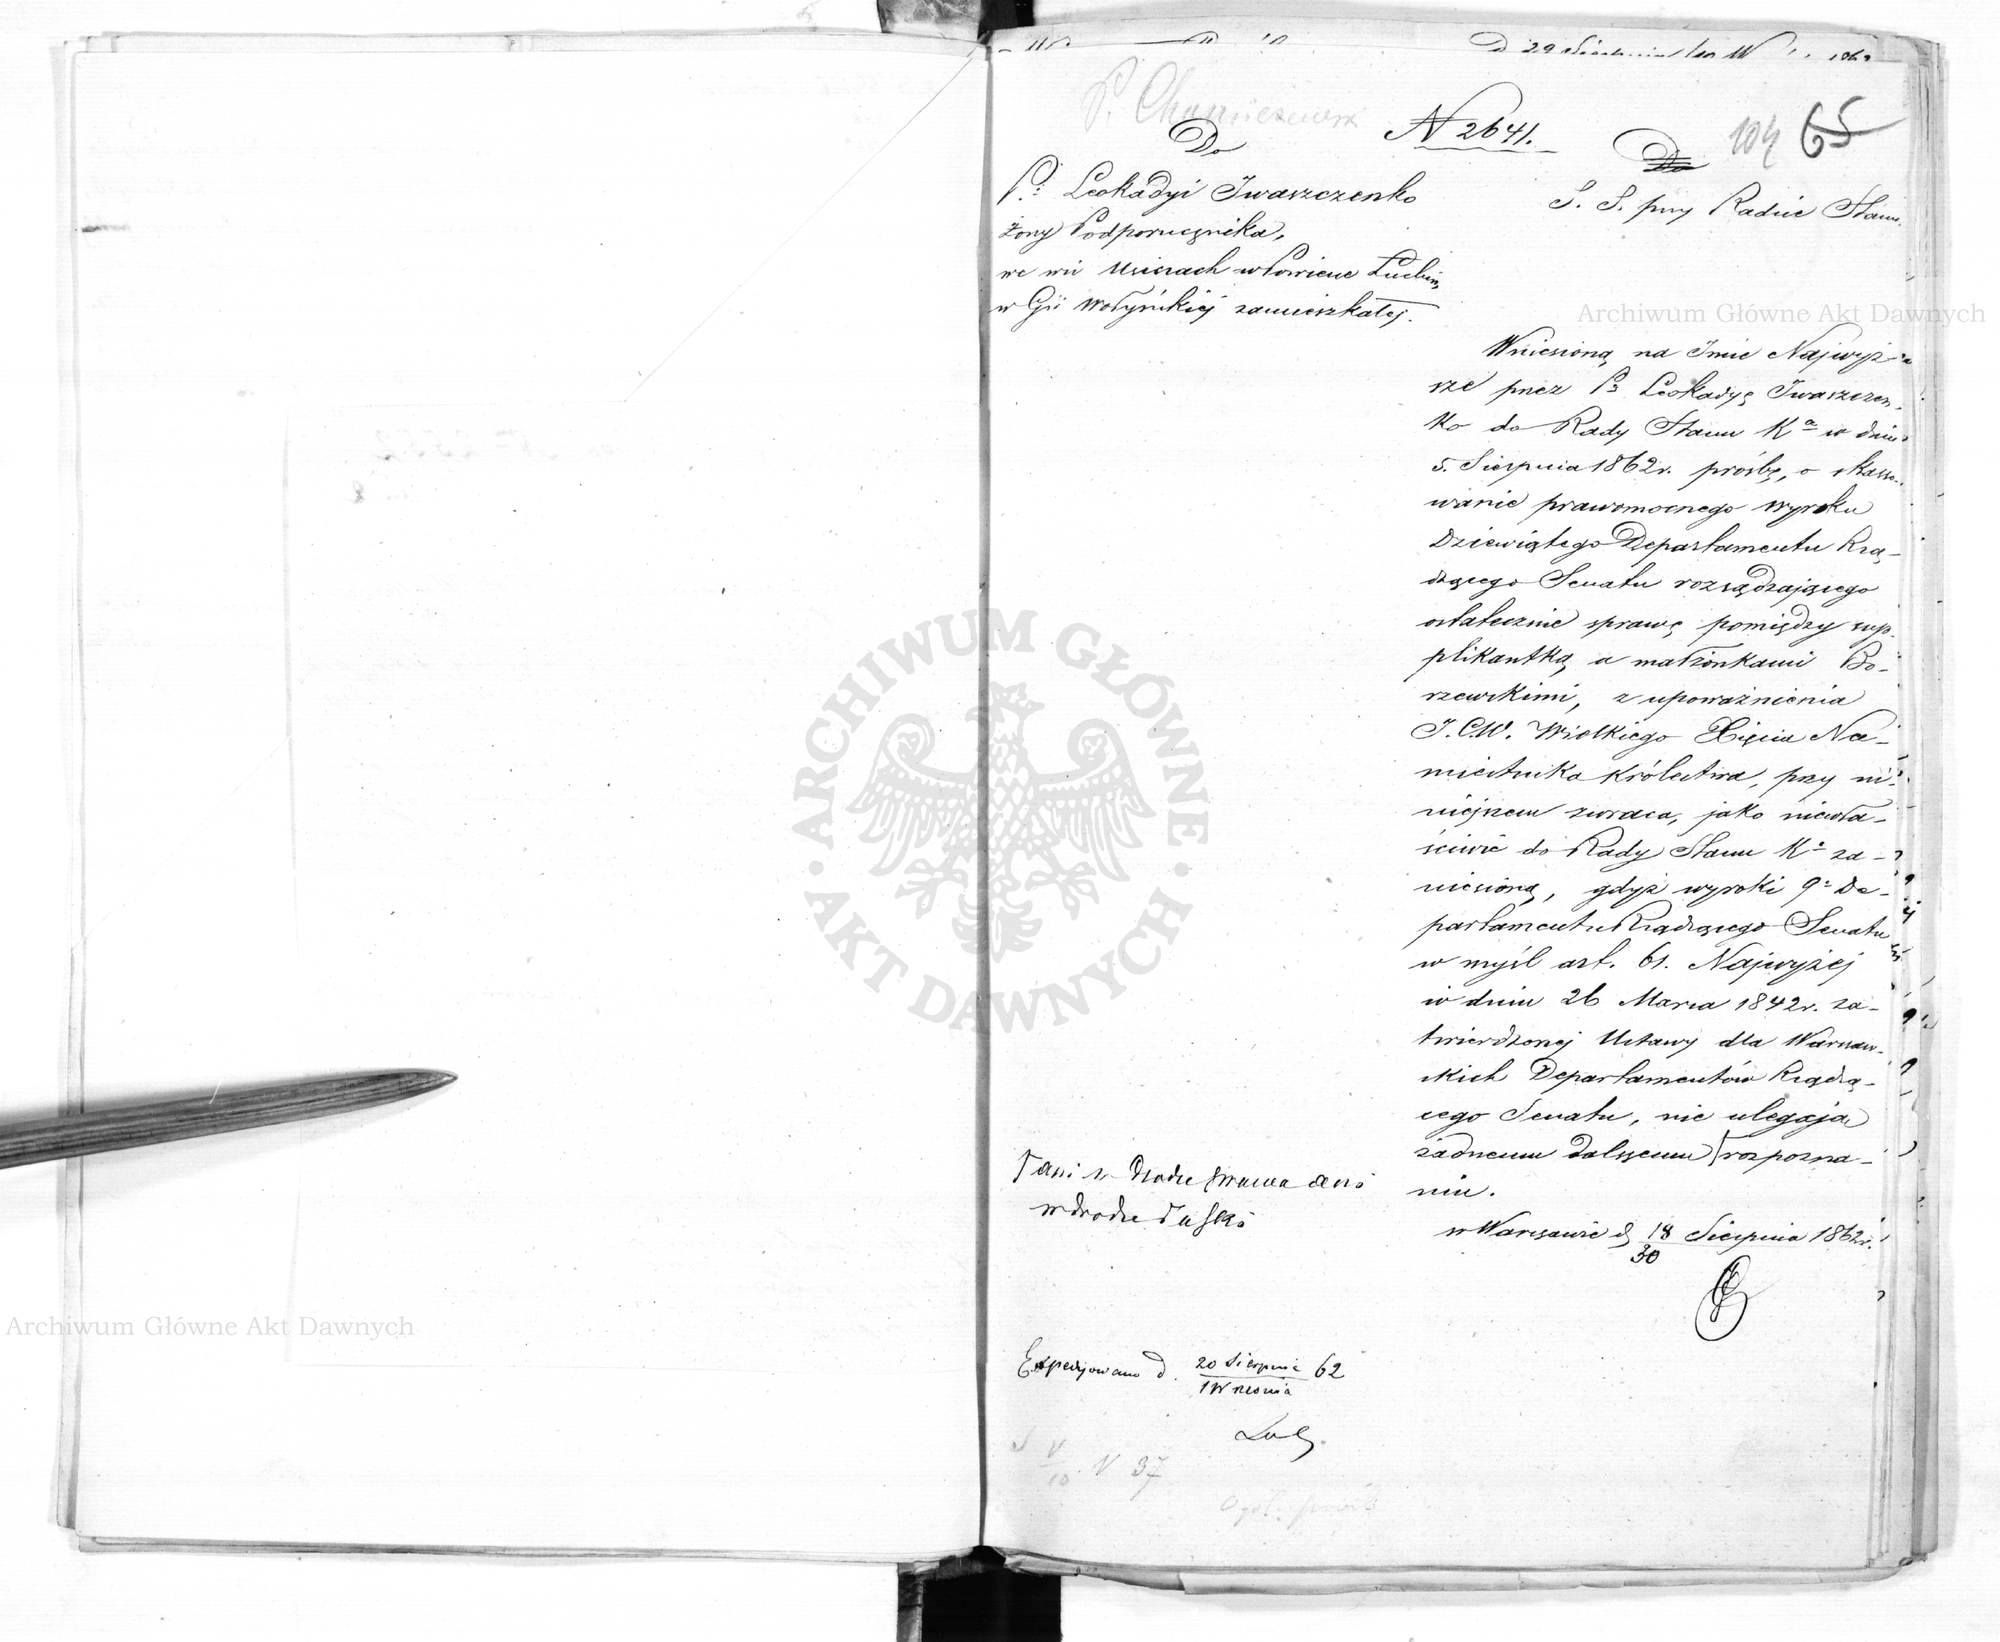 P. Chamiec
104 65
N 2641.
Do
P: Leokadyi Iwaszczenko
Żony Podporucznika,
we wsi Usiczach w Powiecie Łuckim
w Gii Wołyńskiej zamieszkałej.
Do
S. S. przy Radzie Stanu
Wniesioną na Imie Najwyż-
sze przez Pą Leokadyę Iwaszczen-
ko do Rady Stanu Ka w dniu
5. Sierpnia 1862 r. prośbę, o skasso-
wanie prawomocnego wyroku
Dziewiątego Departamentu Rzą-
dzącego Senatu rozsądzającego
ostatecznie sprawę pomiędzy sup-
plikantką a małżonkami Bo-
rzewskimi, z upoważnienia
J. C. W. Wielkiego Xięcia Na-
miestnika Królestwa, przy ni-
niejszem zwraca, jako niewła-
ściwie do Rady Stanu Ka za-
niesioną, gdyż wyroki 9o De-
partamentu Rządzącego Senatu
w myśl art. 61. Najwyżej
w dniu 26 Marca 1842 r. za-
twierdzonej Ustawy dla Warszaw-
skich Departamentów Rządzą-
cego Senatu, nie ulegają
żadnemu dalszemu rozpozna-
niu.
w Warszawie d 18/30 Sierpnia 1862 r.
w drodze
Expedjowano d. 20 Sierpnia / 1 Września 62
V 37
Archiwum Główne Akt Dawnych
Archiwum Główne Akt Dawnych
· ARCHIWUM GŁÓWNE · AKT DAWNYCH